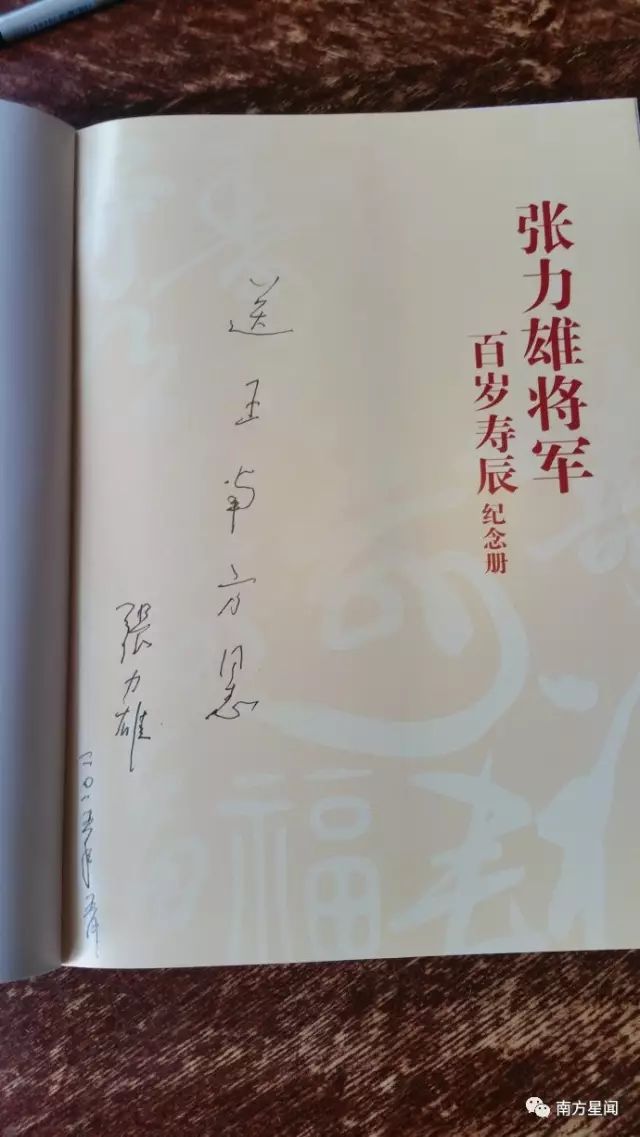 张力雄将军
百岁寿辰纪念册
送王南方同志
張力雄
二〇一五年
福
南方星闻